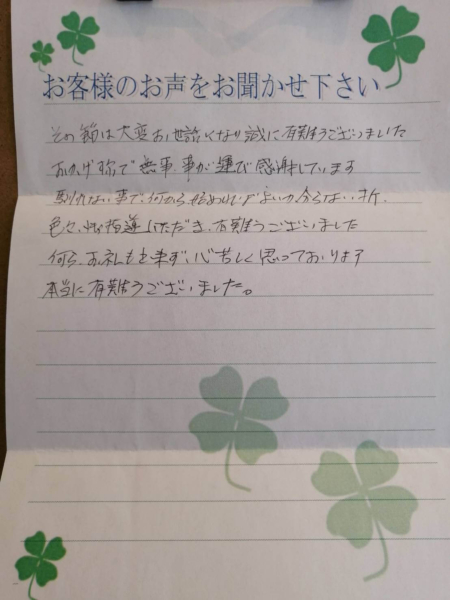 お客様のお声をお聞かせ下さい
その節は大変お世話になり誠に有難うございました
おかげ様で無事、事が運び感謝しています
馴れない事で何から始めればよいか分らない折、
色々、御指導いただき、有難うございました
何ら、お礼も出来ず、心苦しく思っております
本当に有難うございました。